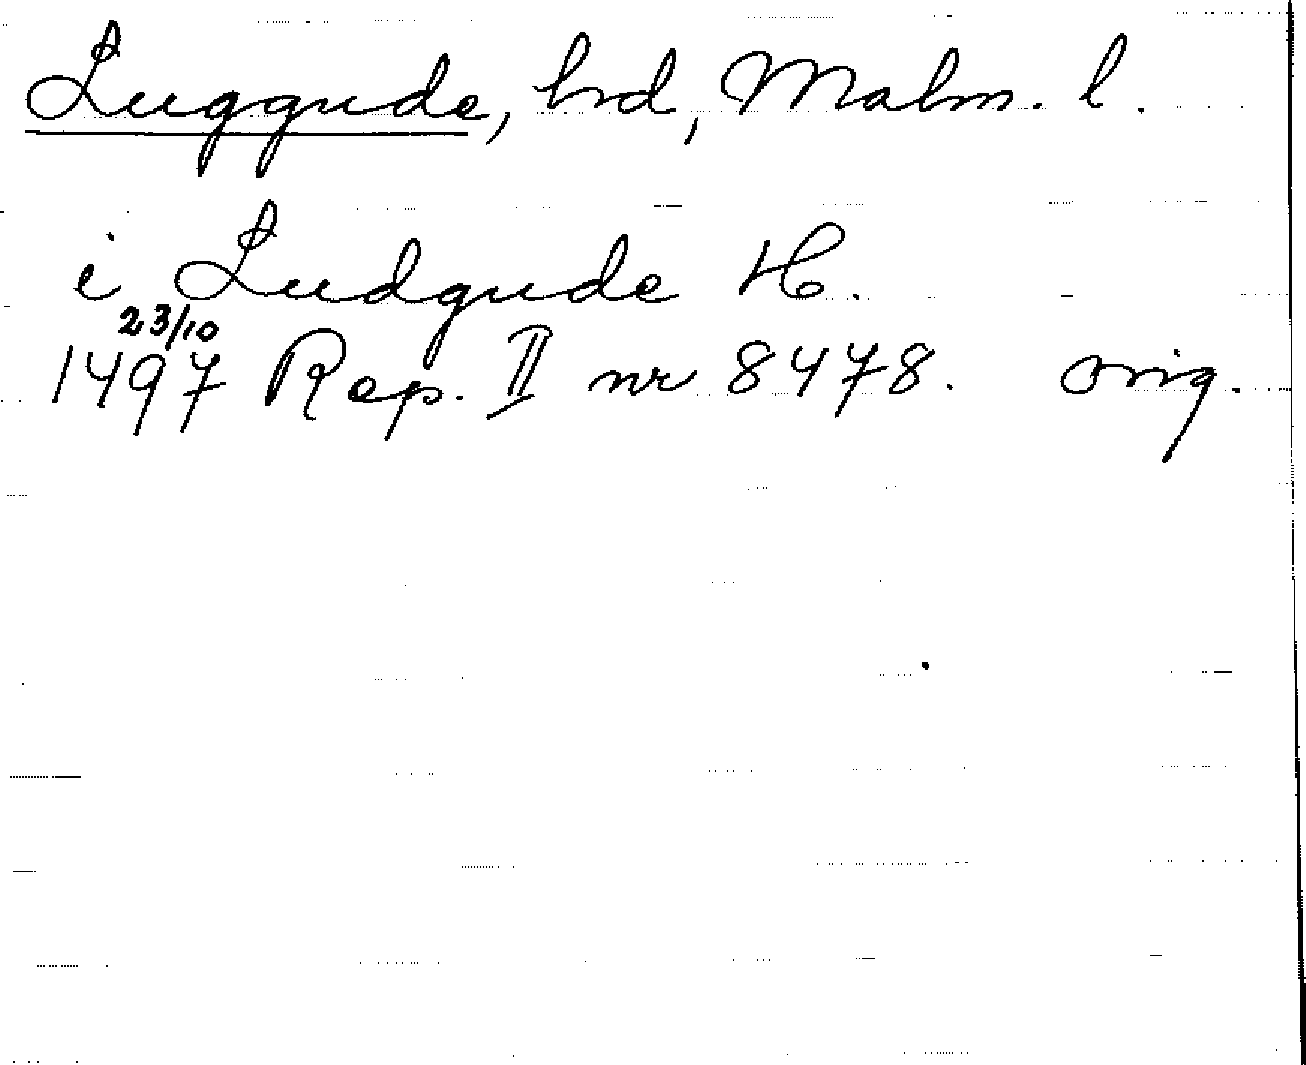 Luggude, hrd, Malm. l.
i Ludgude H.
23/10
1497 Rep. II nr 8478. orig.